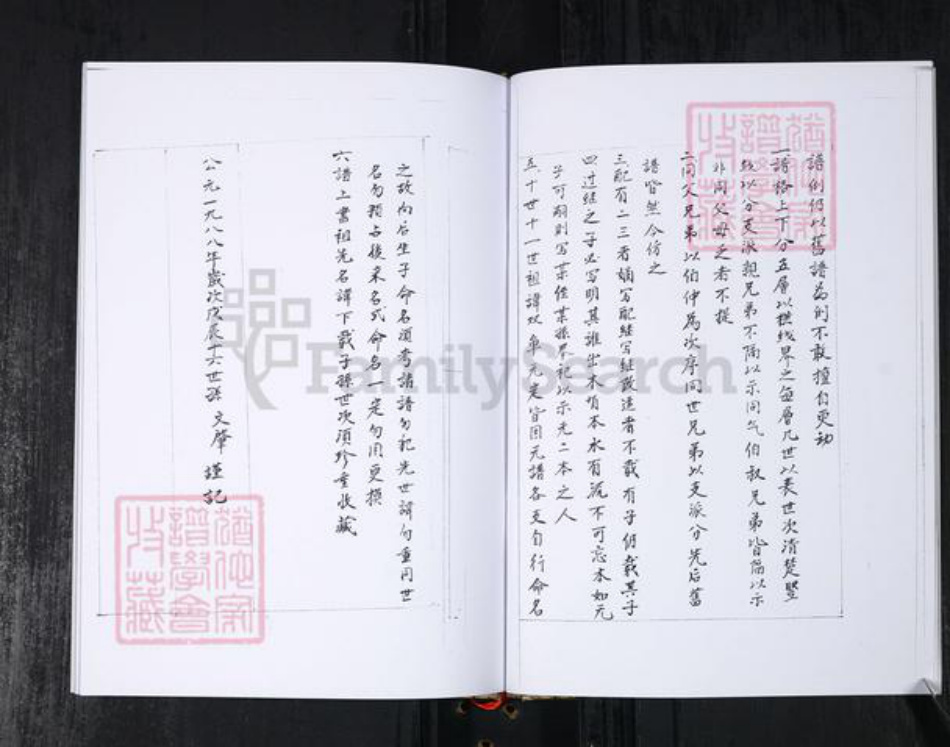 譜例仍以舊譜為例不敢擅自更动
一譜格上下分五層以横线界之每層几世以表世次清楚竪
线以分支派親兄弟不隔以示同气伯叔兄弟皆隔以示
非同父母之者不提
二同父兄弟以伯仲為次序同世兄弟以支派分先后舊
譜皆然今仿之
三配有二三者嫡写配继写继改适者不载有子仍载其子
四过继之子必写明其誰出木有本水有源不可忘本如元
子可嗣则写某侄某孫承祀以示无二本之人
五十世十一世祖諱双单元定皆因元譜各支自行命名
之故向后生子命名須考諸譜勿犯先世諱勿重同世
名勿預占後来名式命名一定勿用更换
六譜上書祖先名諱下载子孫世次須珍重收藏
公元一九八八年歲次戊辰十六世孫 文肇 谨記
猶他家譜學會收藏
猶他家譜學會收藏
FamilySearch